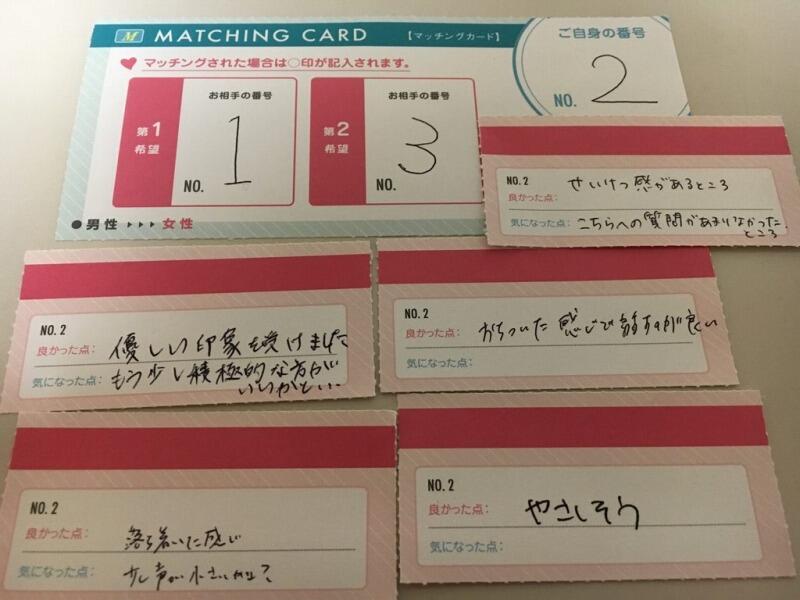 M MATCHING CARD 【マッチングカード】
ご自身の番号
マッチングされた場合は○印が記入されます。
NO. 2
第1希望
お相手の番号
NO. 1
第2希望
お相手の番号
NO. 3
●男性▶▶▶女性
NO.2
良かった点: せいけつ感があるところ
気になった点: こちらへの質問があまりなかった
ところ
NO.2
良かった点: 優しい印象を受けました
気になった点: もう少し積極的な方が
いいかと…
NO.2
良かった点: おちついた感じで話すのが良い
気になった点:
NO.2
良かった点: 落ち着いた感じ
気になった点: 少し声が小さいかな?
NO.2
良かった点: やさしそう
気になった点: